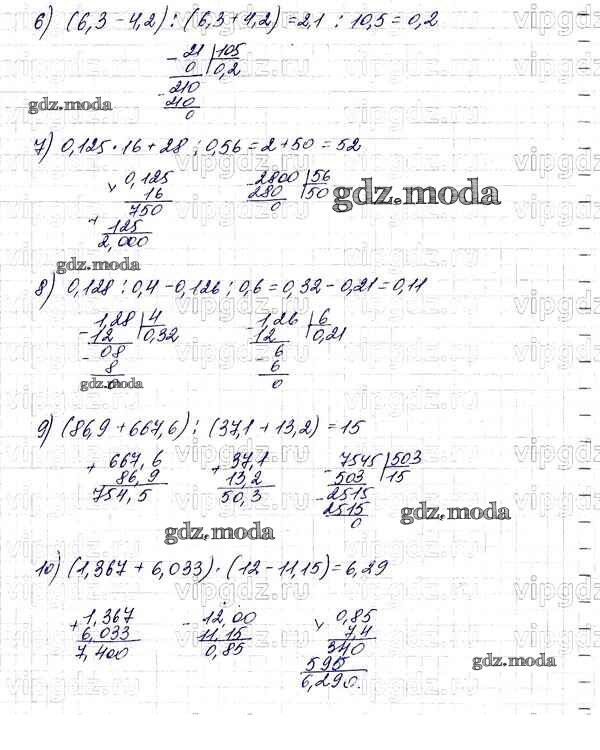 6) (6,3 - 4,2) : (6,3 + 4,2) = 2,1 : 10,5 = 0,2
- 21 | 105
0 | 0,2
210
- 210
0
gdz.moda
7) 0,125 · 16 + 28 : 0,56 = 2 + 50 = 52
× 0,125
16
750
+ 125
2,000
- 2800 | 56
280 | 50
0
gdz.moda
gdz.moda
8) 0,128 : 0,4 - 0,126 : 0,6 = 0,32 - 0,21 = 0,11
- 1,28 | 4
12 | 0,32
- 08
8
0
- 1,26 | 6
12 | 0,21
- 6
6
0
gdz.moda
9) (86,9 + 667,6) : (37,1 + 13,2) = 15
+ 667,6
86,9
754,5
+ 37,1
13,2
50,3
- 7545 | 503
503 | 15
- 2515
2515
0
gdz.moda
gdz.moda
10) (1,367 + 6,033) · (12 - 11,15) = 6,29
+ 1,367
6,033
7,400
- 12,00
11,15
0,85
× 0,85
7,4
340
595
6,290.
gdz.moda
vipgdz.ru